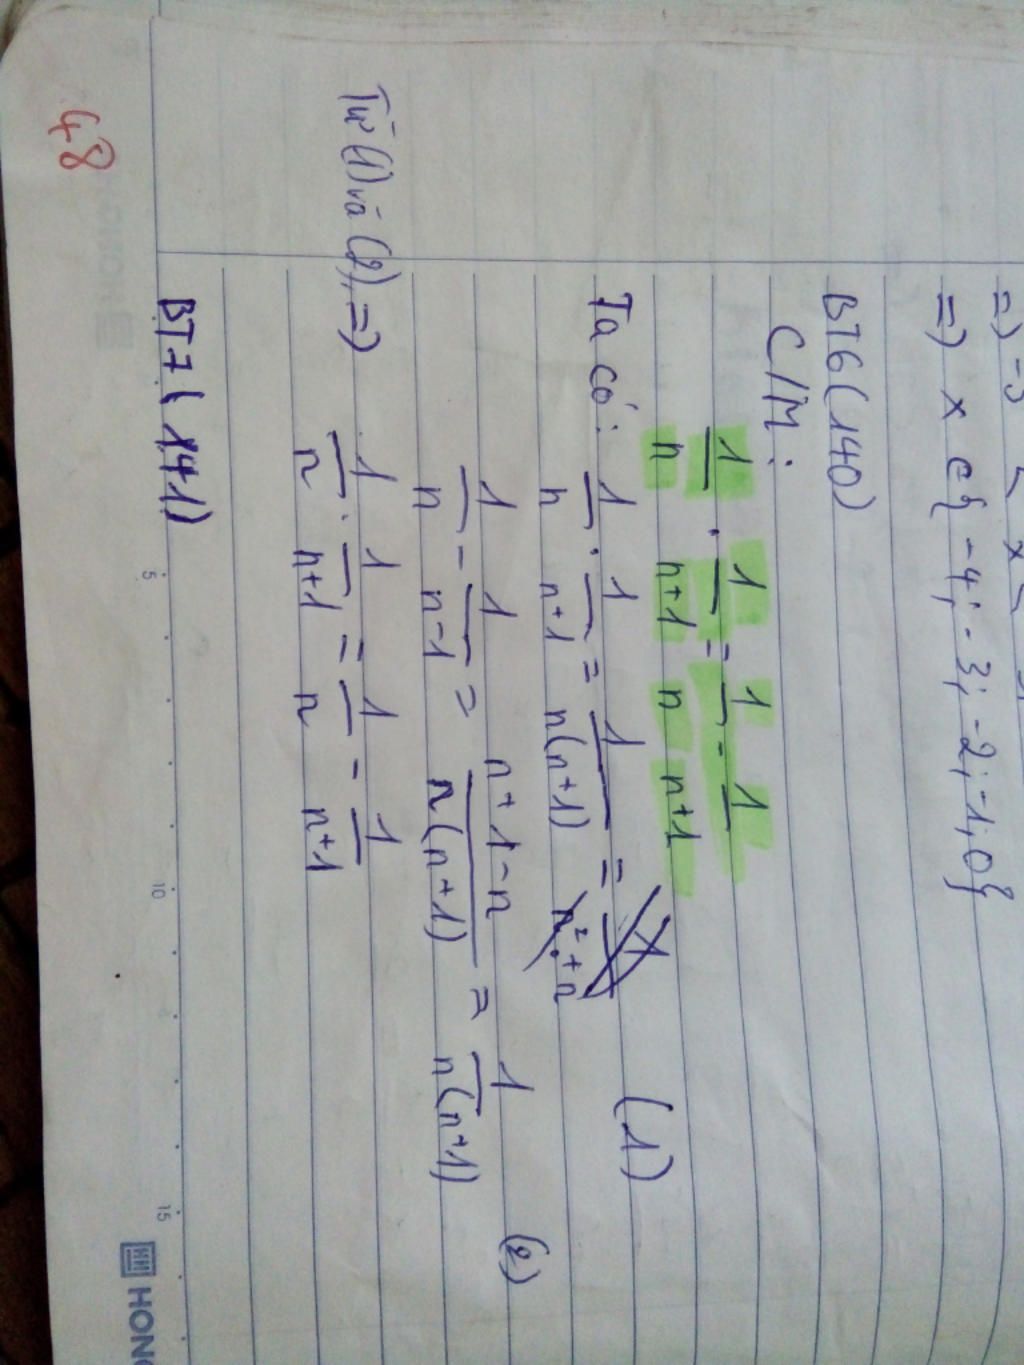 =) x ∈ { -4; -3; -2; -1; 0}
BT6 (140)
C/M:
1/n . 1/n+1 = 1/n - 1/n+1
Ta có: 1/n . 1/n+1 = 1/n(n+1) = 1/n²+n (1)
1/n - 1/n-1 = n+1-n/n(n+1) = 1/n(n+1) (2)
Từ (1) và (2), =) 1/n . 1/n+1 = 1/n - 1/n+1
BT7 (141)
48
5 10 15
HONG